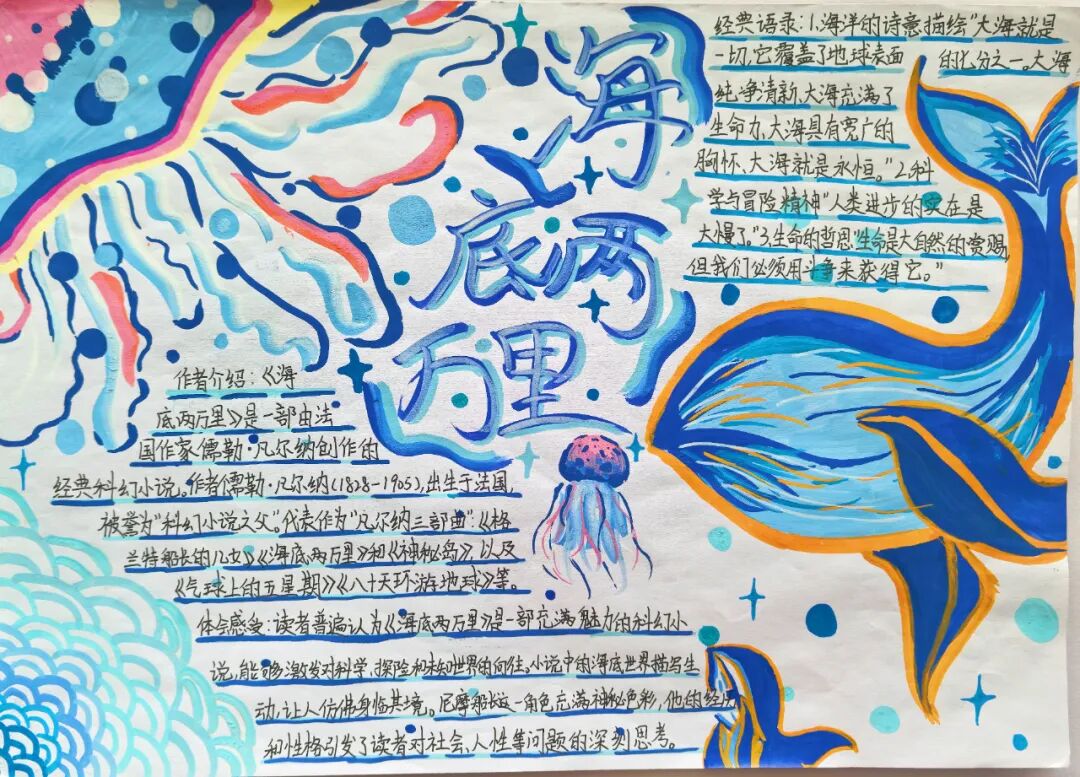 海
底两
万里
经典语录:1.海洋的诗意描绘"大海就是
一切,它覆盖了地球表面 的 分之一。大海
纯净清新,大海充满了
生命力,大海具有宽广的
胸怀、大海就是永恒。"2.科
学与冒险精神"人类进步的实在是
太慢了。"3.生命的哲思"生命是大自然的赏赐,
但我们必须用斗争来获得它。"
作者介绍:《海
底两万里》是一部由法
国作家儒勒·凡尔纳创作的
经典科幻小说。作者儒勒·凡尔纳(1828-1905),出生于法国,
被誉为"科幻小说之父"。代表作为"凡尔纳三部曲":《格
兰特船长的儿女》《海底两万里》和《神秘岛》,以及
《气球上的五星期》《八十天环游地球》等。
体会感受:读者普遍认为《海底两万里》是一部充满魅力的科幻小
说,能够激发对科学、探险和未知世界的向往。小说中的海底世界描写生
动,让人仿佛身临其境。尼摩船长这一角色充满神秘色彩,他的经历
和性格引发了读者对社会、人性等问题的深刻思考。